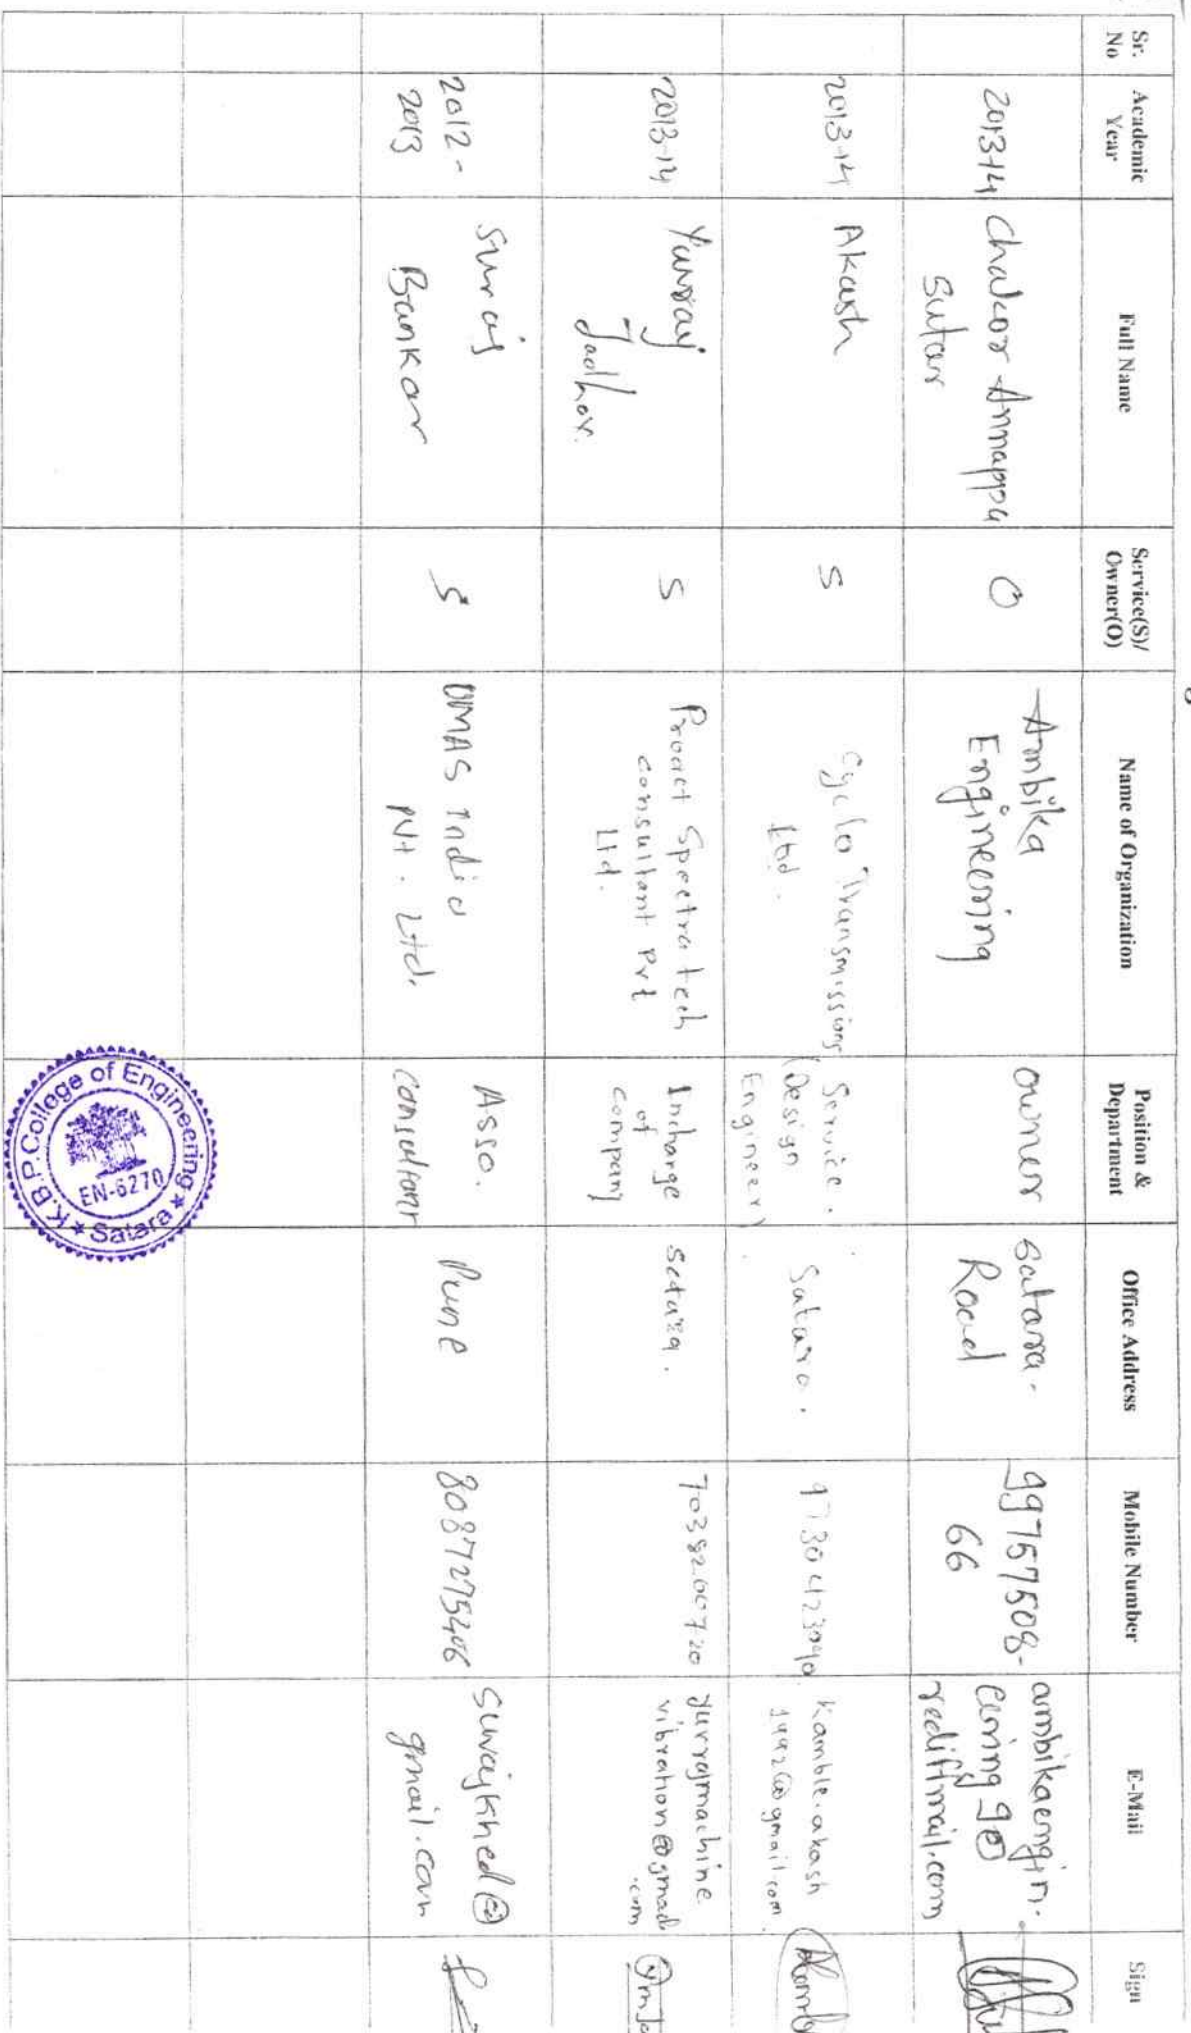 Sr. No
Academic Year
Full Name
Service(S)/ Owner(O)
Name of Organization
Position & Department
Office Address
Mobile Number
E-Mail
Sign
2013-14
Chakor Annappa
Sutar
O
Ambika
Engineering
owner
Satara-
Road
99757508-
66
ambikaengin-
eering 9@
rediffmail.com
2013-14
Akash
S
Cyclo Transmissions
Ltd.
Service.
(Design
Engineer)
Satara.
9730423090
kamble.akash
1992@gmail.com
2013-14
Yuvraj
Jadhav.
S
Proact Spectratech
consultant Pvt
Ltd.
Incharge
of
company
satara.
7038200720
yuvrajmachine
vibration@gmail
.com
2012-
2013
Suraj
Bankar
S
OMAS India
Pvt. Ltd.
Asso.
consultant
Pune
8087275406
Surajkhed@
gmail.com
K.B.P. College of Engineering
EN-6270
★ Satara ★